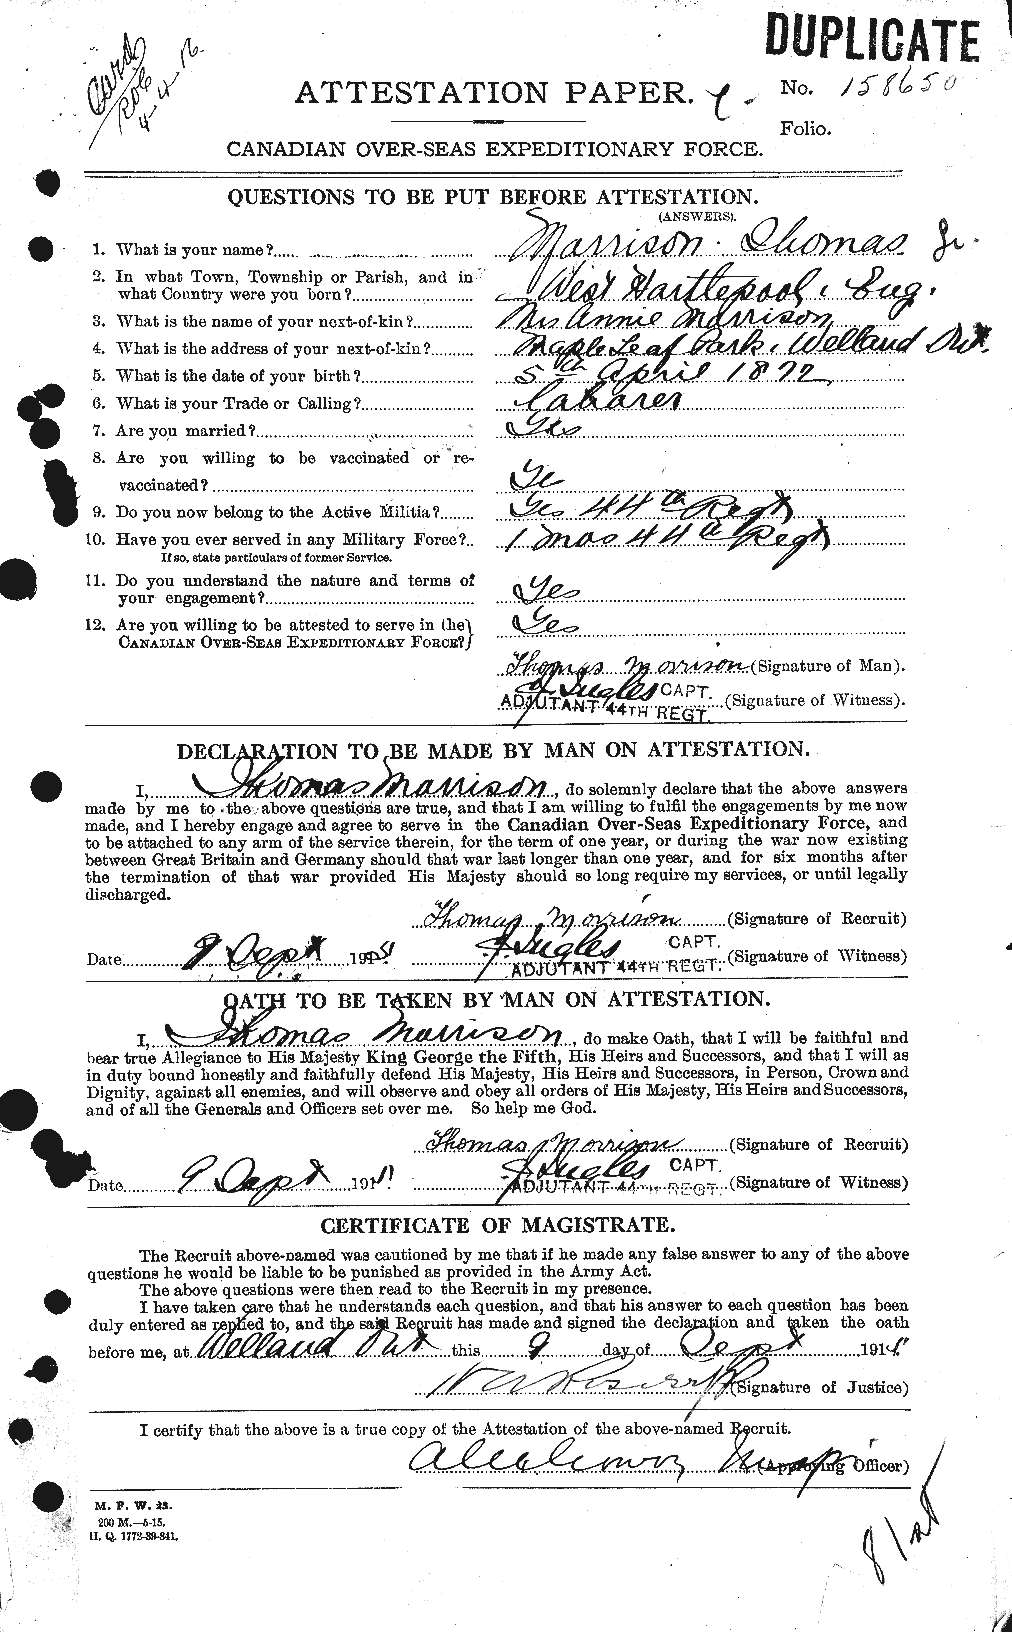 DUPLICATE
Card
4-4-16
ATTESTATION PAPER.
No. 158650
Folio.
CANADIAN OVER-SEAS EXPEDITIONARY FORCE.
QUESTIONS TO BE PUT BEFORE ATTESTATION.
(ANSWERS).
1. What is your name? Morrison. Thomas Jr.
2. In what Town, Township or Parish, and in
what Country were you born? West Hartlepool, Eng.
3. What is the name of your next-of-kin? Mrs Annie Morrison
4. What is the address of your next-of-kin? Maple Leaf Park, Welland Ont.
5. What is the date of your birth? 5th April 1877
6. What is your Trade or Calling? Laborer
7. Are you married? Yes
8. Are you willing to be vaccinated or re-
vaccinated? Ye
9. Do you now belong to the Active Militia? Yes 44th Regt
10. Have you ever served in any Military Force? 1 mos 44th Regt
If so, state particulars of former Service.
11. Do you understand the nature and terms of
your engagement? Yes
12. Are you willing to be attested to serve in the
CANADIAN OVER-SEAS EXPEDITIONARY FORCE? Yes
Thomas Morrison (Signature of Man).
J Ingles CAPT.
ADJUTANT 44TH REGT. (Signature of Witness).
DECLARATION TO BE MADE BY MAN ON ATTESTATION.
I, Thomas Morrison, do solemnly declare that the above answers
made by me to the above questions are true, and that I am willing to fulfil the engagements by me now
made, and I hereby engage and agree to serve in the Canadian Over-Seas Expeditionary Force, and
to be attached to any arm of the service therein, for the term of one year, or during the war now existing
between Great Britain and Germany should that war last longer than one year, and for six months after
the termination of that war provided His Majesty should so long require my services, or until legally
discharged.
Thomas Morrison (Signature of Recruit)
Date 9 Sept 1915 J. Ingles CAPT. (Signature of Witness)
ADJUTANT 44TH REGT.
OATH TO BE TAKEN BY MAN ON ATTESTATION.
I, Thomas Morrison, do make Oath, that I will be faithful and
bear true Allegiance to His Majesty King George the Fifth, His Heirs and Successors, and that I will as
in duty bound honestly and faithfully defend His Majesty, His Heirs and Successors, in Person, Crown and
Dignity, against all enemies, and will observe and obey all orders of His Majesty, His Heirs and Successors,
and of all the Generals and Officers set over me. So help me God.
Thomas Morrison (Signature of Recruit)
J Ingles CAPT.
Date 9 Sept 191 ADJUTANT 44TH REGT. (Signature of Witness)
CERTIFICATE OF MAGISTRATE.
The Recruit above-named was cautioned by me that if he made any false answer to any of the above
questions he would be liable to be punished as provided in the Army Act.
The above questions were then read to the Recruit in my presence.
I have taken care that he understands each question, and that his answer to each question has been
duly entered as replied to, and the said Recruit has made and signed the declaration and taken the oath
before me, at Welland Ont this 9 day of Sept 1915
(Signature of Justice)
I certify that the above is a true copy of the Attestation of the above-named Recruit.
(Approving Officer)
M. F. W. 23.
200 M.—5-15.
H. Q. 1772-39-841.
81st